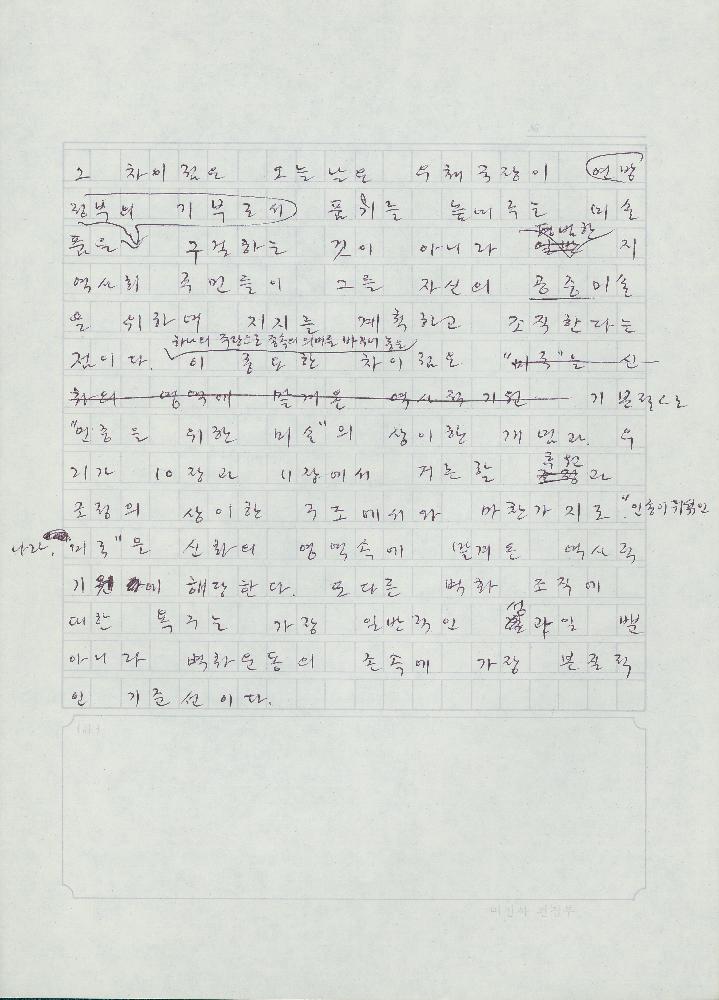 그 차이점은 오늘날은 우체국장이 연방
정부의 기부로서 품위를 높여주는 미술
평범한
품을 구걸하는 것이 아니라 일반 지
역사회 주민들이 그들 자신의 공중미술
을 위하여 지지를 계획하고 조직한다는
하나의 주장으로 종속의 의미를 바꾸어 놓는
점이다. 이 중요한 차이점은 "미국"은 신
화의 영역에 맡겨온 역사적 기원 기본적으로
"민중을 위한 미술"의 상이한 개념과, 우
후원
리가 10장과 11장에서 거론할 과
조정의 상이한 구조에서와 마찬가지로, "민중이 위한
나라, "미국"을 신화의 영역속에 맡겨온 역사적
기원에 해당한다. 또다른 벽화 조직에
성
대한 욕구는 가장 일반적인 과일 뿐
아니라 벽화운동의 존속에 가장 본질적
인 기준선이다.
미진사 편집부